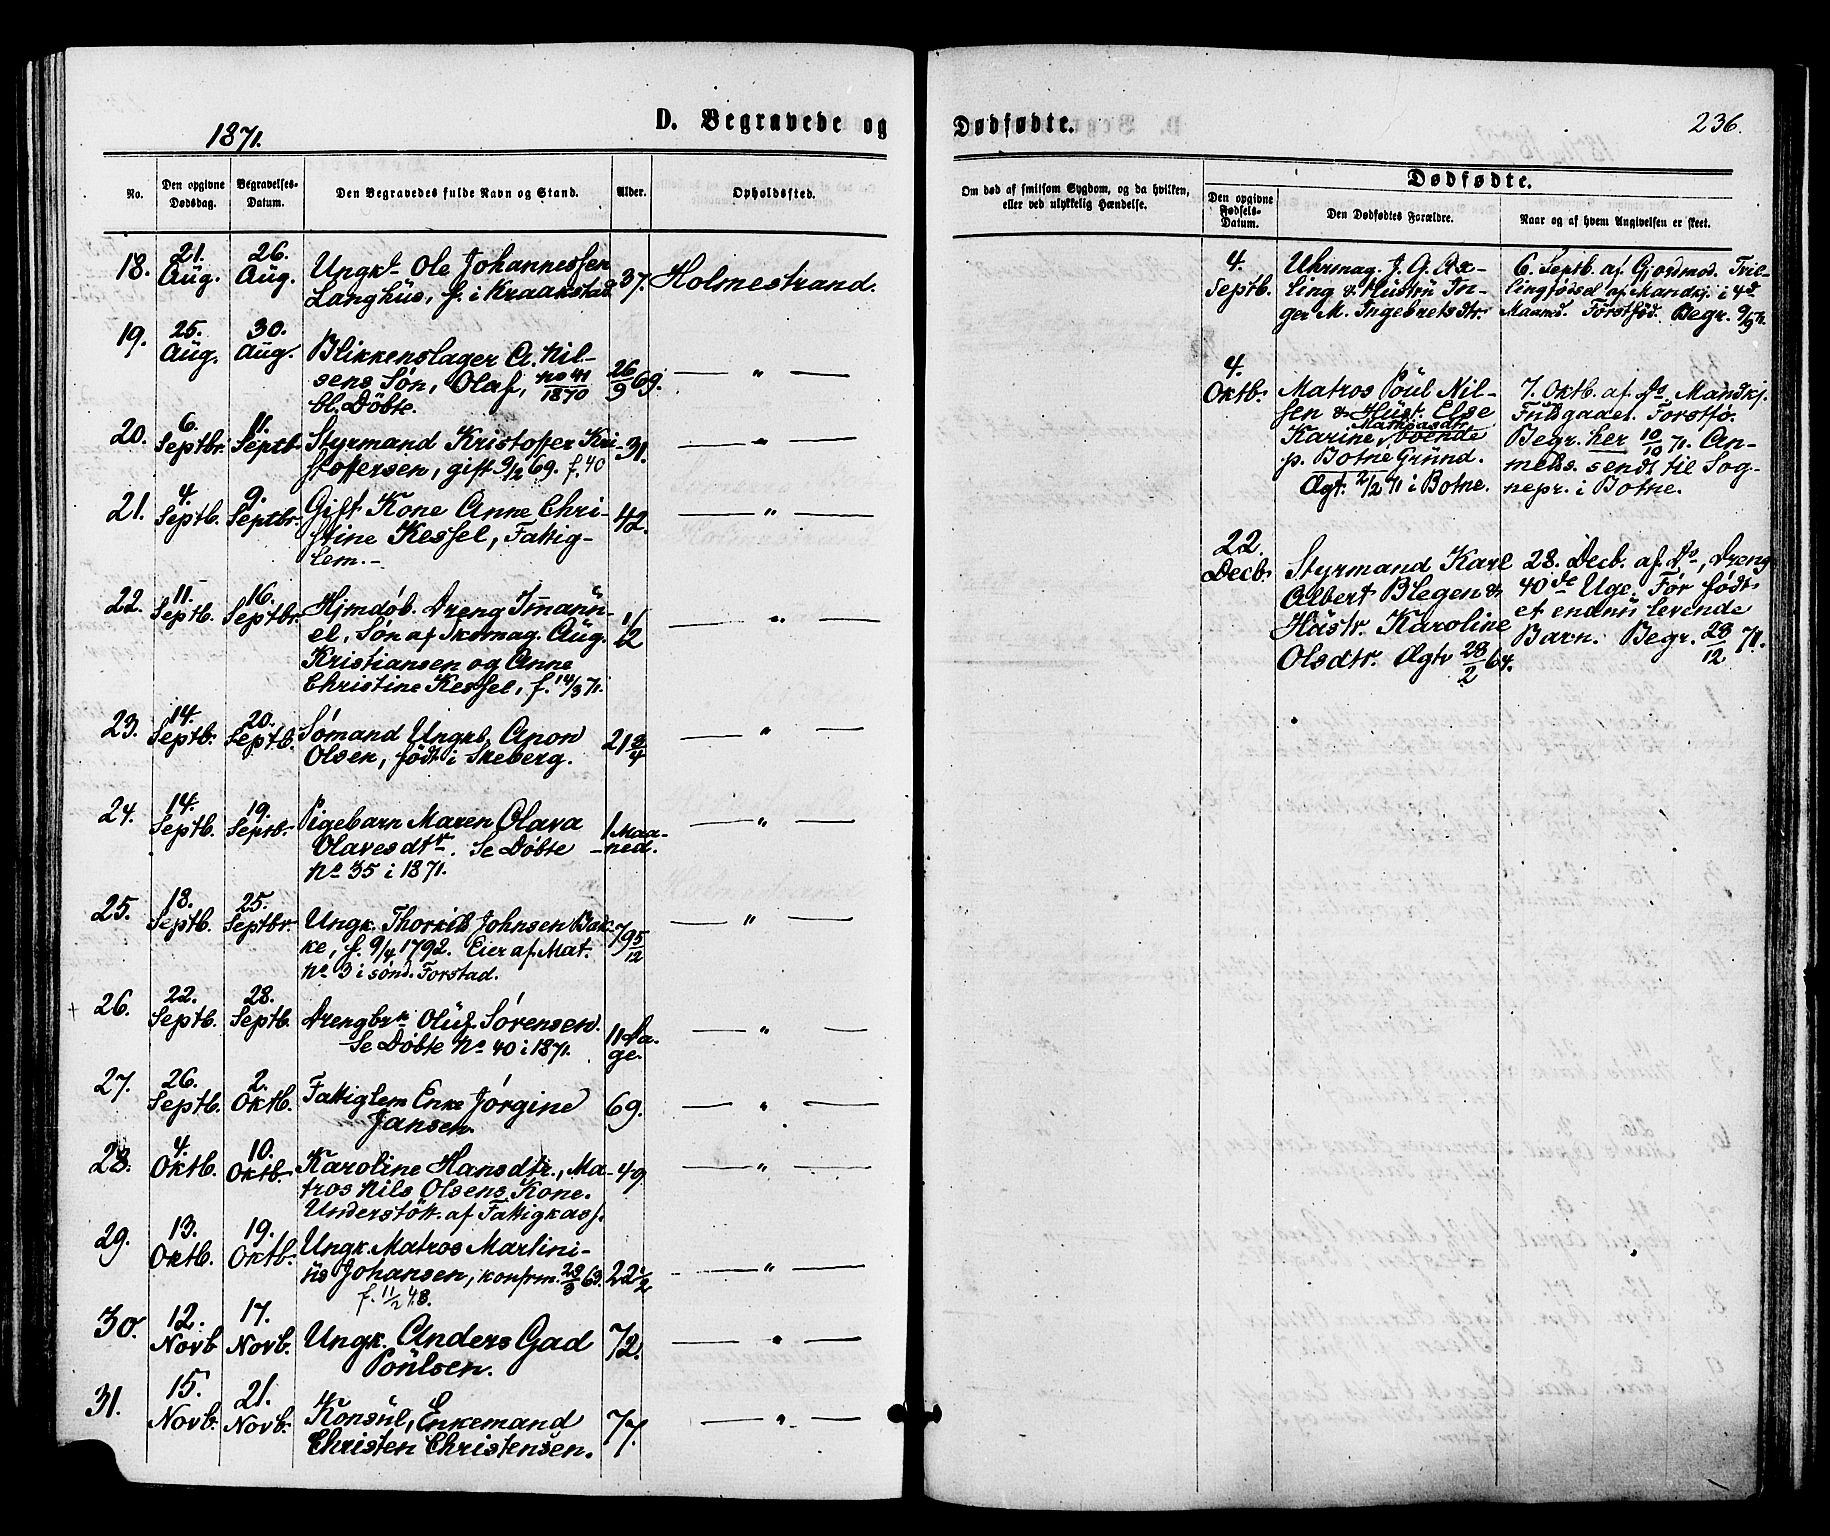 1871.
D. Begravede og
Dødfødte.
236.
No.
Den opgivne Dødsdag.
Begravelses-Datum.
Den Begravedes fulde Navn og Stand.
Alder.
Opholdssted.
Om død af smitsom Sygdom, og da hvilken,
eller ved ulykkelig Hændelse.
Dødfødte.
Den opgivne Fødsels-Datum.
Den Dødfødtes Forældre.
Naar og af hvem Angivelsen er skeet.
18. 21. Aug. 26. Aug. Ungk. Ole Johannessen
Langhus, f. i Kraakstad 37. Holmestrand.
19. 25. Aug. 30. Aug. Blikkenslager A. Nil-
sens Søn, Olaf, No 41 1870
bl. Døbte. 26/9 69. — " —
20. 6. Septbr. 11. Septb. Styrmand Kristoffer Kri-
stoffersen, gift 9/12 69. f. 40 31. — " —
21. 4. Septb. 9. Septbr. Gift Kone Anne Chri-
stine Kessel, Fattig-
lem. 42. — " —
22. 11. Septb. 16. Septbr. Hjmdøb. Dreng Imanü-
el, Søn af Skomag. Aug.
Kristiansen og Anne
Christine Kessel, f. 14/3 71. 1/2 — " —
23. 14. Septb. 20. Septb. Sømand Ungk. Anon
Olsen, født i Skeberg. 21 3/4 — " —
24. 14. Septb. 19. Septbr. Pigebarn Maren Olava
Olavesdtr. Se Døbte
No 35 i 1871. 1 Maa-
ned. — " —
25. 18. Septb. 25. Septbr. Ungk. Thorkild Johnsen Bak-
ke, f. 9/4 1792. Eier af Mat.
No 3 i sønd. Forstad. 79 5/12 — " —
26. 22. Septb. 28. Septb. Drengbrn Olüf Sørensen.
Se Døbte No 40 i 1871. 11 Da-
ge. — " —
27. 26. Septb. 2. Oktb. Fattiglem Enke Jørgine
Jansen. 69. — " —
28. 4. Oktb. 10. Oktb. Karoline Hansdtr., Ma-
tros Nils Olsens Kone.
Understött. af Fattigkass. 49 — " —
29. 13. Oktb. 19. Oktb. Ungk. Matros Martini-
üs Johansen, konfirm. 29/3 63.
f. 11/2 48. 22 1/2 — " —
30. 12. Novb 17. Novb. Ungk. Anders Gad
Poülsen. 72. — " —
31. 15. Novb. 21. Novb. Konsül, Enkemand
Christen Christensen. 77. — " —
4. Septb. Uhrmag. J. G. Ax-
ling & Hüstrü In-
ger M. Ingebretsdtr.
6. Septb. af Gjordmod. Tvil-
lingfødsel af Mandkj. i 4de
Maaned. Førstfød. Begr. 9/9 71.
4. Oktb. Matros Poül Nil-
sen & Hüst. Else
Karine Mathiasdtr. boende
p. Botne Gründ.
Ægt. 2/2 71 i Botne.
7. Oktb. af Do Mandkj.
Fuldgaaet. Førstfø.
Begr. her 10/10 71. An-
melds. sendt til Sog-
nepr. i Botne.
22. Decb. Styrmand Karl
Albert Blegen &
Hüstr. Karoline
Olsdtr. Ægtv 28/2 64.
28. Decb. af Do, Dreng
40de Uge. Før født
et endnü levende
Barn. Begr. 28/12 71.